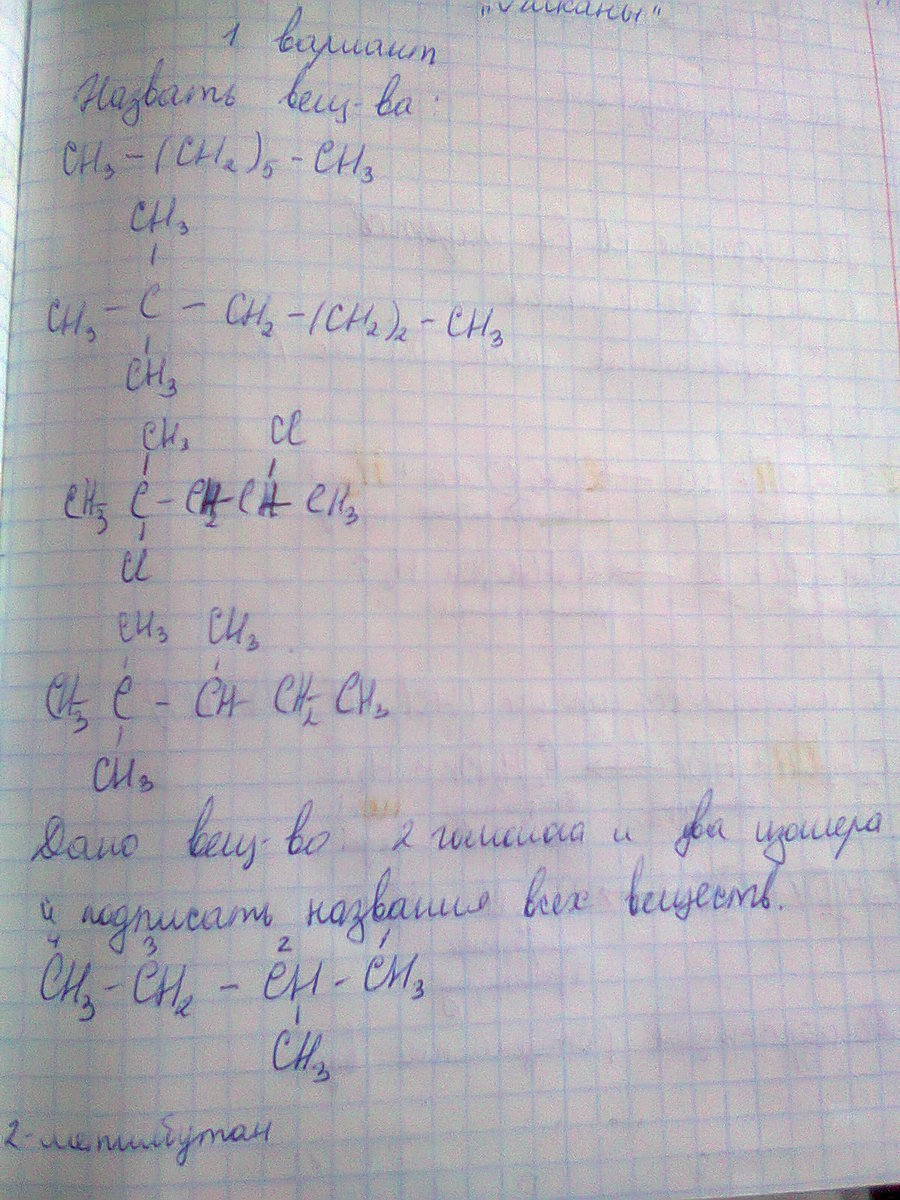 "Алканы"
1 вариант
Назвать вещ-ва:
CH₃-(CH₂)₅-CH₃
CH₃
CH₃-C-CH₂-(CH₂)₂-CH₃
CH₃
CH₃ Cl
CH₃-C-CH₂-CH-CH₃
Cl
CH₃ CH₃
CH₃-C-CH-CH₂-CH₃
CH₃
Дано вещ-во: 2 гомолога и два изомера
и подписать названия всех веществ.
4 3 2 1
CH₃-CH₂-CH-CH₃
CH₃
2-метилбутан